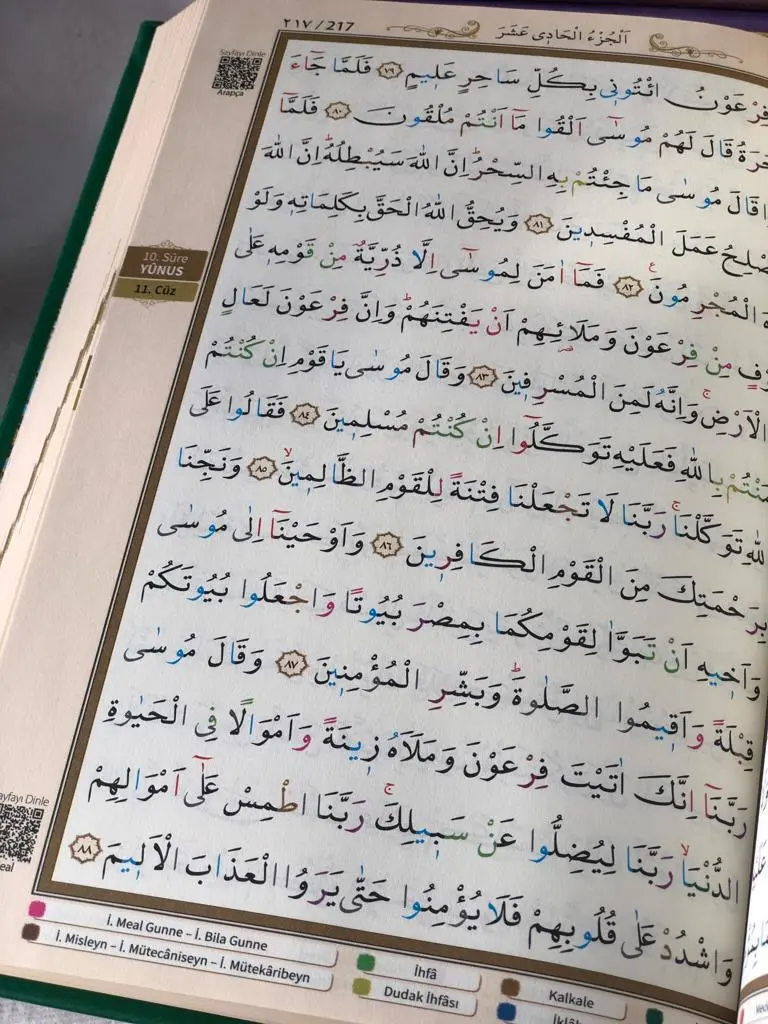 ٢١٧ / 217
اَلْجُزْءُ الْحَادِى عَشَرَ
Sayfayı Dinle
Arapça
فِرْعَوْنُ ائْتُونٖى بِكُلِّ سَاحِرٍ عَلٖيمٍ ﴿٧٩﴾ فَلَمَّا جَٓاءَ
قَالَ لَهُمْ مُوسٰٓى اَلْقُوا مَٓا اَنْتُمْ مُلْقُونَ ﴿٨٠﴾ فَلَمَّٓا
قَالَ مُوسٰى مَا جِئْتُمْ بِهِ السِّحْرُؕ اِنَّ اللّٰهَ سَيُبْطِلُهُؕ اِنَّ اللّٰهَ
عَمَلَ الْمُفْسِدٖينَ ﴿٨١﴾ وَيُحِقُّ اللّٰهُ الْحَقَّ بِكَلِمَاتِهٖ وَلَوْ
الْمُجْرِمُونَ ﴿٨٢﴾ فَمَٓا اٰمَنَ لِمُوسٰٓى اِلَّا ذُرِّيَّةٌ مِنْ قَوْمِهٖ عَلٰى
مِنْ فِرْعَوْنَ وَمَلَا۬ئِهِمْ اَنْ يَفْتِنَهُمْؕ وَاِنَّ فِرْعَوْنَ لَعَالٍ
الْاَرْضِۚ وَاِنَّهُ لَمِنَ الْمُسْرِفٖينَ ﴿٨٣﴾ وَقَالَ مُوسٰى يَا قَوْمِ اِنْ كُنْتُمْ
بِاللّٰهِ فَعَلَيْهِ تَوَكَّلُٓوا اِنْ كُنْتُمْ مُسْلِمٖينَ ﴿٨٤﴾ فَقَالُوا عَلَى
اللّٰهِ تَوَكَّلْنَاۚ رَبَّنَا لَا تَجْعَلْنَا فِتْنَةً لِلْقَوْمِ الظَّالِمٖينَۙ ﴿٨٥﴾ وَنَجِّنَا
بِرَحْمَتِكَ مِنَ الْقَوْمِ الْكَافِرٖينَ ﴿٨٦﴾ وَاَوْحَيْنَٓا اِلٰى مُوسٰى
وَاَخٖيهِ اَنْ تَبَوَّاٰ لِقَوْمِكُمَا بِمِصْرَ بُيُوتًا وَاجْعَلُوا بُيُوتَكُمْ
قِبْلَةً وَاَقٖيمُوا الصَّلٰوةَؕ وَبَشِّرِ الْمُؤْمِنٖينَ ﴿٨٧﴾ وَقَالَ مُوسٰى
رَبَّنَٓا اِنَّكَ اٰتَيْتَ فِرْعَوْنَ وَمَلَاَهُ زٖينَةً وَاَمْوَالًا فِى الْحَيٰوةِ
الدُّنْيَاۙ رَبَّنَا لِيُضِلُّوا عَنْ سَبٖيلِكَۚ رَبَّنَا اطْمِسْ عَلٰٓى اَمْوَالِهِمْ
وَاشْدُدْ عَلٰى قُلُوبِهِمْ فَلَا يُؤْمِنُوا حَتّٰى يَرَوُا الْعَذَابَ الْاَلٖيمَ ﴿٨٨﴾
10. Sûre
YÛNUS
11. Cüz
Sayfayı Dinle
Meal
İ. Meal Gunne – İ. Bila Gunne
İ. Misleyn – İ. Mütecâniseyn – İ. Mütekâribeyn
İhfâ
Dudak İhfâsı
Kalkale